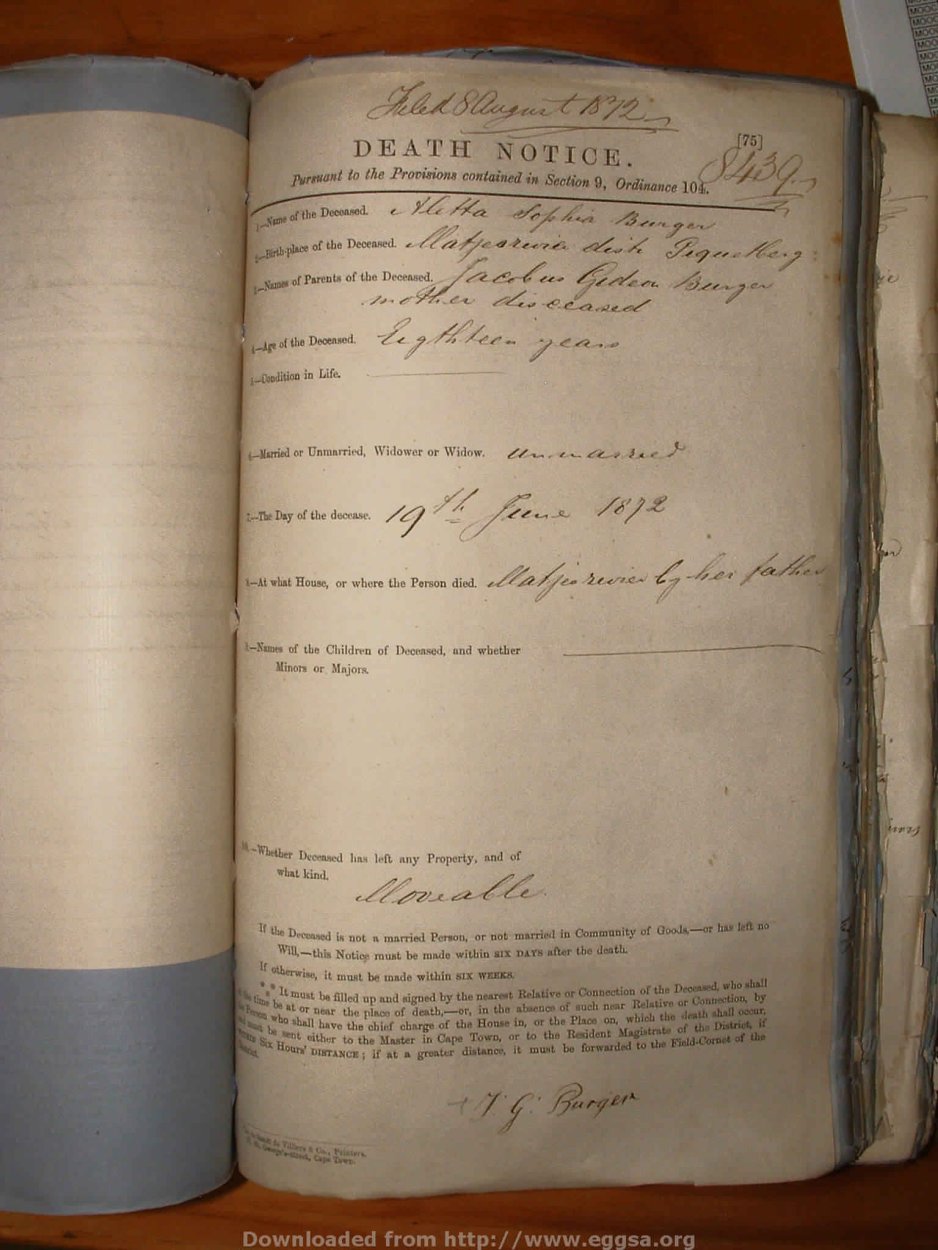 Filed 8 August 1872
[75]
DEATH NOTICE.
8439
Pursuant to the Provisions contained in Section 9, Ordinance 104.
1.—Name of the Deceased. Aletta Sophia Burger
2.—Birth-place of the Deceased. Matjesrivier distr Piquetberg
3.—Names of Parents of the Deceased. Jacobus Gideon Burger
mother disceased
4.—Age of the Deceased. Eigthteen years
5.—Condition in Life.
6.—Married or Unmarried, Widower or Widow. unmarried
7.—The Day of the decease. 19th June 1872
8.—At what House, or where the Person died. Matjesrivier by her father
9.—Names of the Children of Deceased, and whether
Minors or Majors.
10.—Whether Deceased has left any Property, and of
what kind.
Moveable
If the Deceased is not a married Person, or not married in Community of Goods,—or has left no
Will,—this Notice must be made within SIX DAYS after the death.
If otherwise, it must be made within SIX WEEKS.
*** It must be filled up and signed by the nearest Relative or Connection of the Deceased, who shall
at the time be at or near the place of death,—or, in the absence of such near Relative or Connection, by
the Person who shall have the chief charge of the House in, or the Place on, which the death shall occur,
and must be sent either to the Master in Cape Town, or to the Resident Magistrate of the District, if
within SIX HOURS' DISTANCE; if at a greater distance, it must be forwarded to the Field-Cornet of the
District.
J. G. Burger
de Villiers & Co., Printers,
George's-street, Cape Town.
MOOC
MOOC
MOOC
MOOC
Downloaded from http://www.eggsa.org